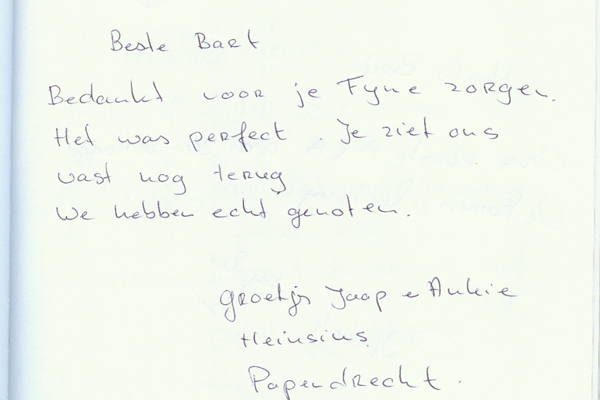 Beste Bart
Bedankt voor je Fyne zorgen.
Het was perfect. Je ziet ons
vast nog terug
We hebben echt genoten.
groetjs Jaap e Ankie
Heinsius
Papendrecht.